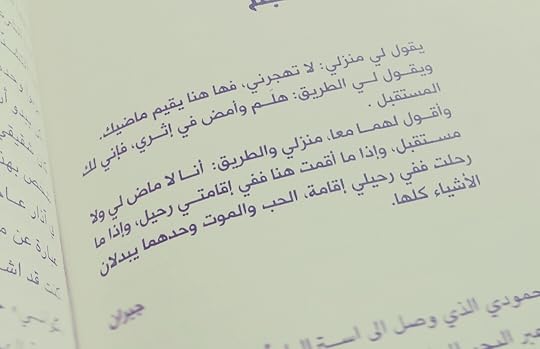 يقول لي منزلي: لا تهجرني، فها هنا يقيم ماضيك.
ويقول لي الطريق: هلَم وأمض في إثري، فإني لك
المستقبل .
وأقول لهما معا، منزلي والطريق: أنا لا ماض لي ولا
مستقبل، وإذا ما أقمت هنا ففي إقامتي رحيل، وإذا ما
رحلت ففي رحيلي إقامة، الحب والموت وحدهما يبدلان
الأشياء كلها.
جبران
حمودي الذي وصل الى